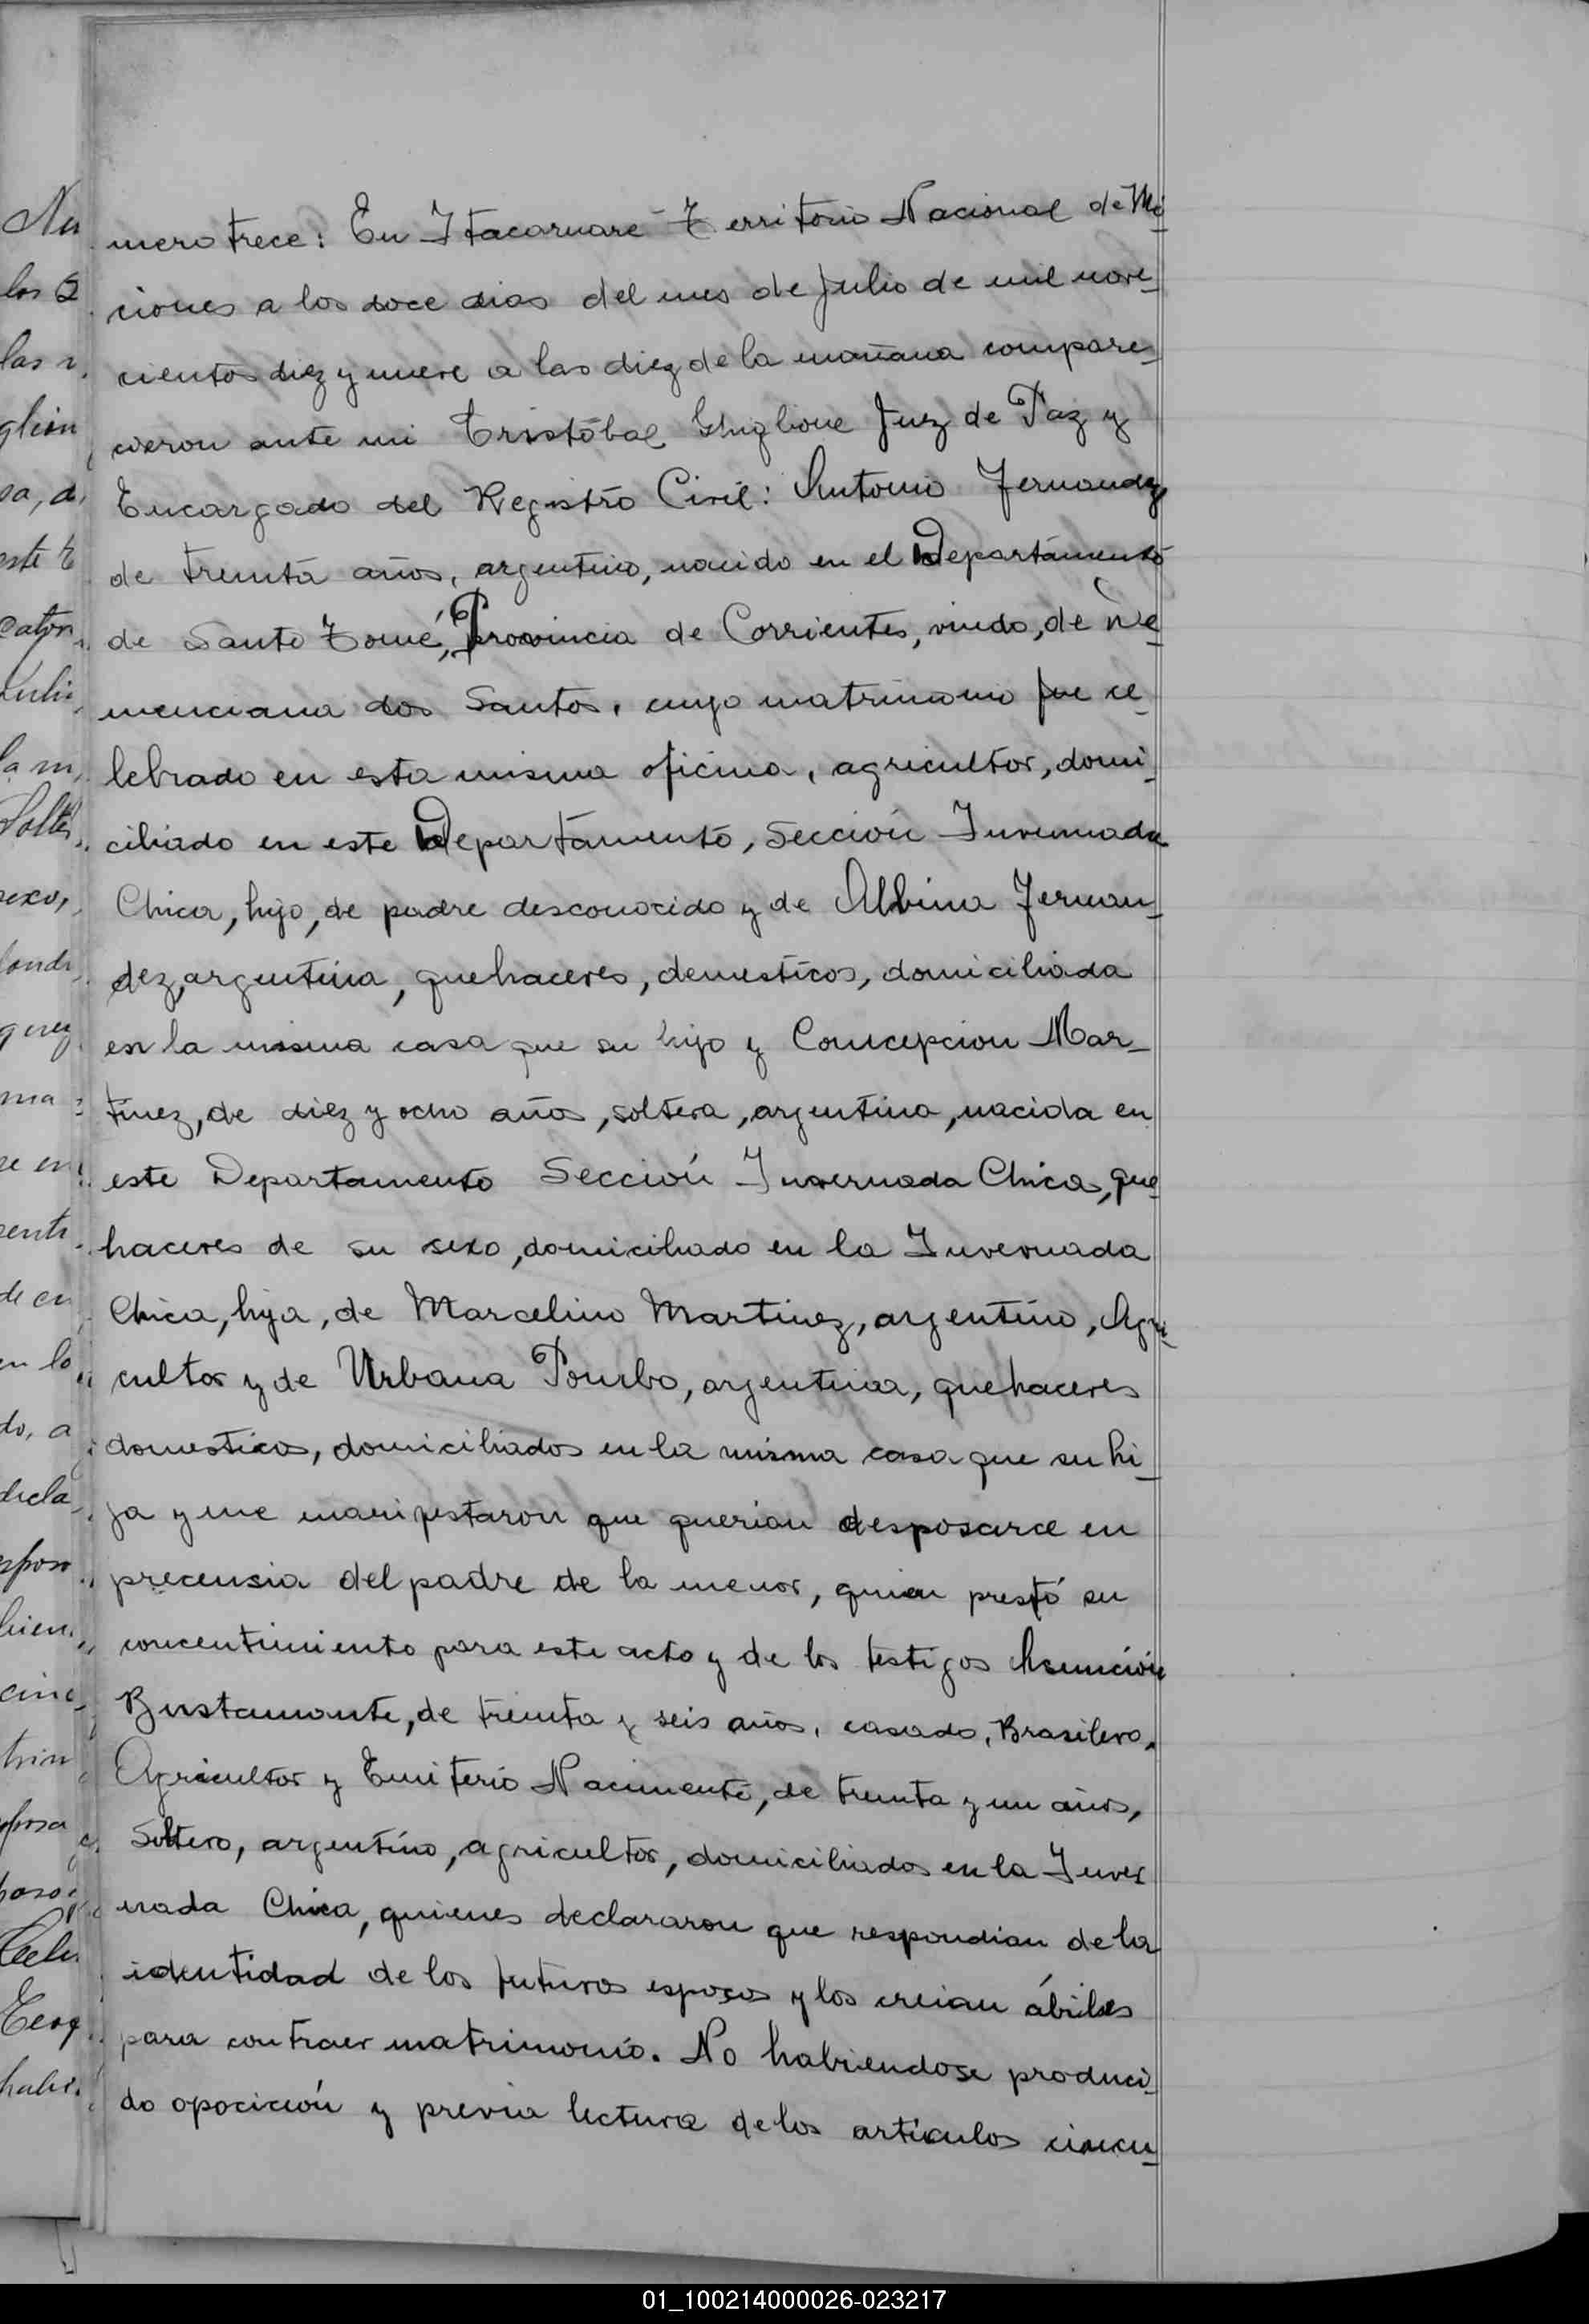 mero trece: En Itacaruaré Territorio Nacional de Mi-
ciones a los doce dias del mes de Julio de mil nove-
cientos diez y nueve a las diez de la mañana compare-
cieron ante mi Cristóbal Ghiglione Juez de Paz y
Encargado del Registro Civil: Antonio Fernandez
de treinta años, argentino, nacido en el Departamento
de Santo Tomé, Provincia de Corrientes, viudo, de
menciana dos Santos, cuyo matrimonio fue ce-
lebrado en esta misma oficina, agricultor, domi-
ciliado en este Departamento, Sección Invernada
Chica, hijo, de padre desconocido y de Albina Fernan-
dez, argentina, quehaceres, demesticos, domiciliada
en la misma casa que su hijo y Concepcion Mar-
tinez, de diez y ocho años, soltera, argentina, nacida en
este Departamento Sección Invernada Chica, que
haceres de su sexo, domiciliado en la Invernada
Chica, hija, de Marcelino Martinez, argentino, Agri-
cultor y de Urbana Pombo, argentina, quehaceres
domesticos, domiciliados en la misma casa que su hi-
ja y me manifestaron que querian desposarce en
precensia del padre de la menor, quien prestó su
concentimiento para este acto y de los testigos Asunción
Bustamante, de treinta y seis años, casado, Brasilero,
Agricultor y Emiterio Nacimento, de treinta y un años,
Soltero, argentino, agricultor, domiciliados en la Inver
nada Chica, quienes declararon que respondian de la
identidad de los futuros esposos y los creian ábiles
para contraer matrimonio. No habiendose produci-
do oposición y previa lectura de los artículos cincu-
01_100214000026-023217